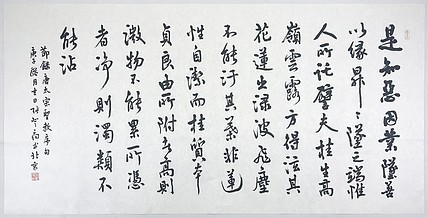 是知惡因業墜善
以緣昇昇墜之端惟
人所託譬夫桂生高
嶺雲露方得泫其
花蓮出淥波飛塵
不能汙其葉非蓮
性自潔而桂質本
貞良由所附者高則
微物不能累所憑
者淨則濁類不
能沾
節錄唐太宗聖教序句